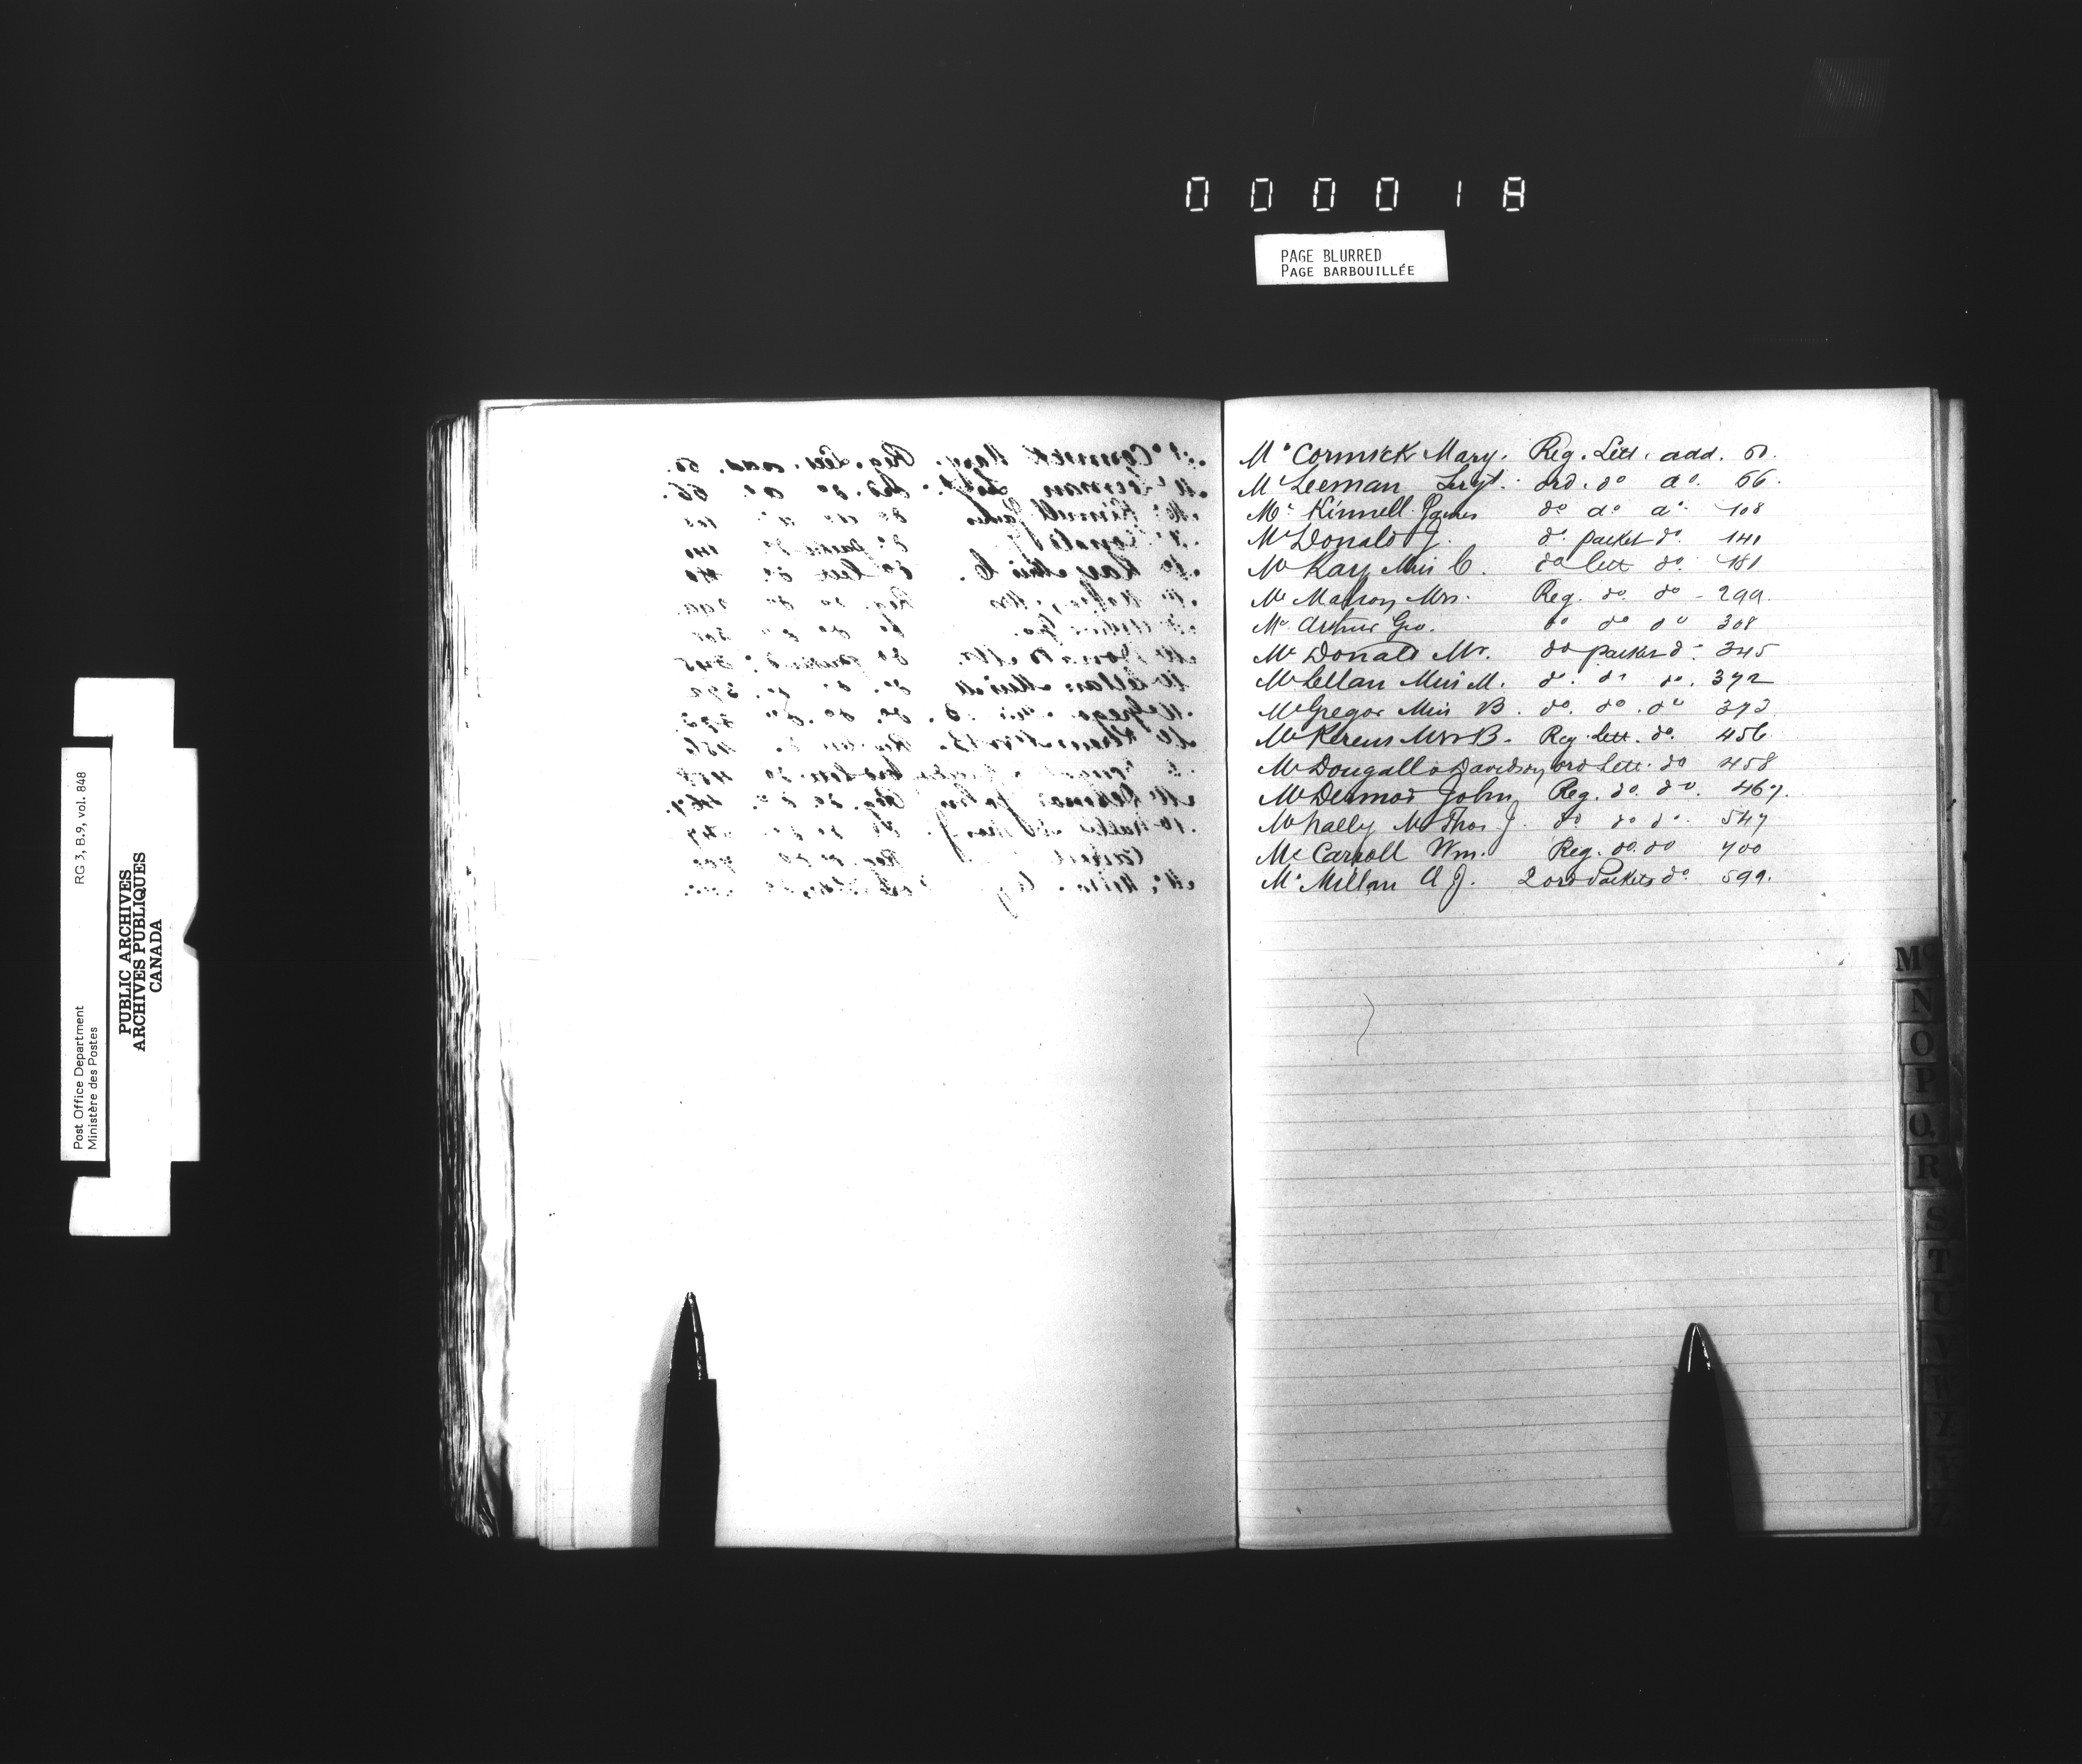 000018
PAGE BLURRED
PAGE BARBOUILLÉE
RG 3, B.9, vol. 848
Post Office Department
Ministère des Postes
PUBLIC ARCHIVES
ARCHIVES PUBLIQUES
CANADA
Mc Cormick Mary. Reg. Lett. add.
Mc Leeman Sergt. ord. do do. 66.
Mc Kinnell James do do do 108
Mc Donald J. do. packet do. 141
Mc Kay Miss C. do lett do. 181
Mc Mahon Mrs. Reg. do. do - 299.
Mc Arthur Geo. do do do 308
Mc Donald Mr. do packet do 345
Mc Lellan Miss M. do. do do. 372
Mc Gregor Miss B. do. do. do 373
Mc Kerens Mrs B. Reg. Lett. do. 456
Mc Dougall & Davidson ord Lett. do 458
Mc Dermod John Reg. do. do. 467.
Mc Nally Thos J. do do do. 547
Mc Carroll Wm. Reg. do. do 700
Mc Millan A J. 2 ord Packets do. 599.
Mc
N
O
P
Q
R
S
T